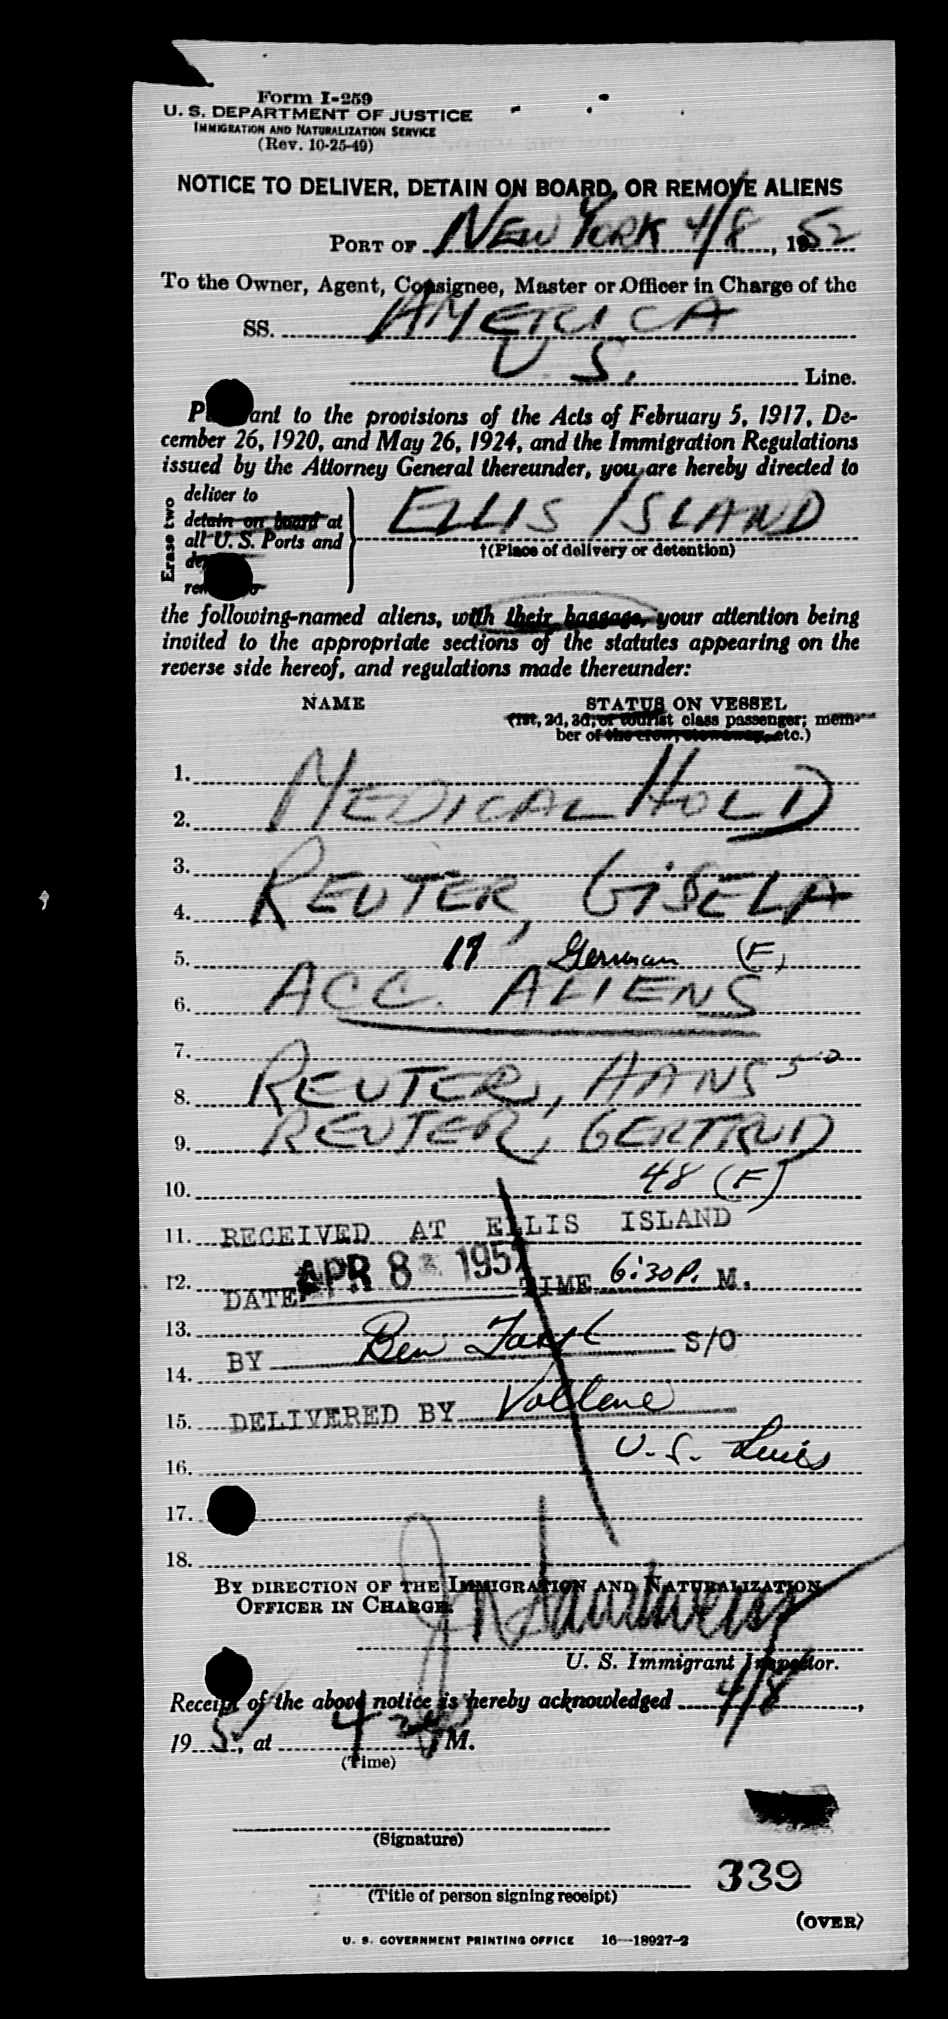 Form I-259
U. S. DEPARTMENT OF JUSTICE
IMMIGRATION AND NATURALIZATION SERVICE
(Rev. 10-25-49)
NOTICE TO DELIVER, DETAIN ON BOARD, OR REMOVE ALIENS
PORT OF NEW YORK 4/8, 1952
To the Owner, Agent, Consignee, Master or Officer in Charge of the
SS. AMERICA
U. S. Line.
P ant to the provisions of the Acts of February 5, 1917, De-
cember 26, 1920, and May 26, 1924, and the Immigration Regulations
issued by the Attorney General thereunder, you are hereby directed to
Erase two
deliver to
detain on board at
all U. S. Ports and
ELLIS ISLAND
†(Place of delivery or detention)
the following-named aliens, with their baggage, your attention being
invited to the appropriate sections of the statutes appearing on the
reverse side hereof, and regulations made thereunder:
NAME STATUS ON VESSEL
(1st, 2d, 3d, or tourist class passenger; mem-
ber of the crew, stowaway, etc.)
1.
2. MEDICAL HOLD
3.
4. REUTER, GISELA
5. 19 German (F)
6. ACC. ALIENS
7.
8. REUTER, HANS 50
9. REUTER, GERTRUD
10. 48 (F)
11. RECEIVED AT ELLIS ISLAND
12. DATE APR 8 1952 TIME 6:30 P. M.
13.
BY Ben S/O
14.
15. DELIVERED BY
U. S. Lines
16.
17.
18.
BY DIRECTION OF THE IMMIGRATION AND NATURALIZATION
OFFICER IN CHARGE
U. S. Immigrant Inspector.
Receipt of the above notice is hereby acknowledged 4/8,
19 5, at 4 M.
(Time)
(Signature)
339
(Title of person signing receipt)
(OVER)
U. S. GOVERNMENT PRINTING OFFICE 16—18927-2